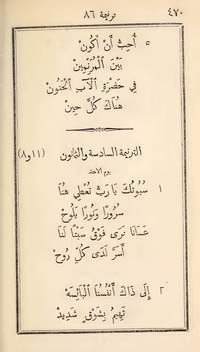 ٤٧٠ ترنيمة ٨٦
٥ أُحِبُّ أَنْ أَكُونْ
بَيْنَ الْمُرَنِّمِينْ
فِي حَضْرَةِ الْآبِ الْحَنُونْ
هُنَاكَ كُلَّ حِينْ
الترنيمة السادسة والثمانون (١١و٨)
يوم الاحد
١ سُبُوتُكَ يَا رَبُّ تُعْطِي هُنَا
سُرُورًا وَنُورًا يَلُوحْ
عَسَانَا نَرَى فَوْقُ سَبْتًا لَنَا
أَسَرَّ لَدَى كُلِّ رُوحْ
٢ إِلَى ذَاكَ أَنْفُسُنَا الْبَائِسَهْ
تَهِيمُ بِشَوْقٍ شَدِيدْ